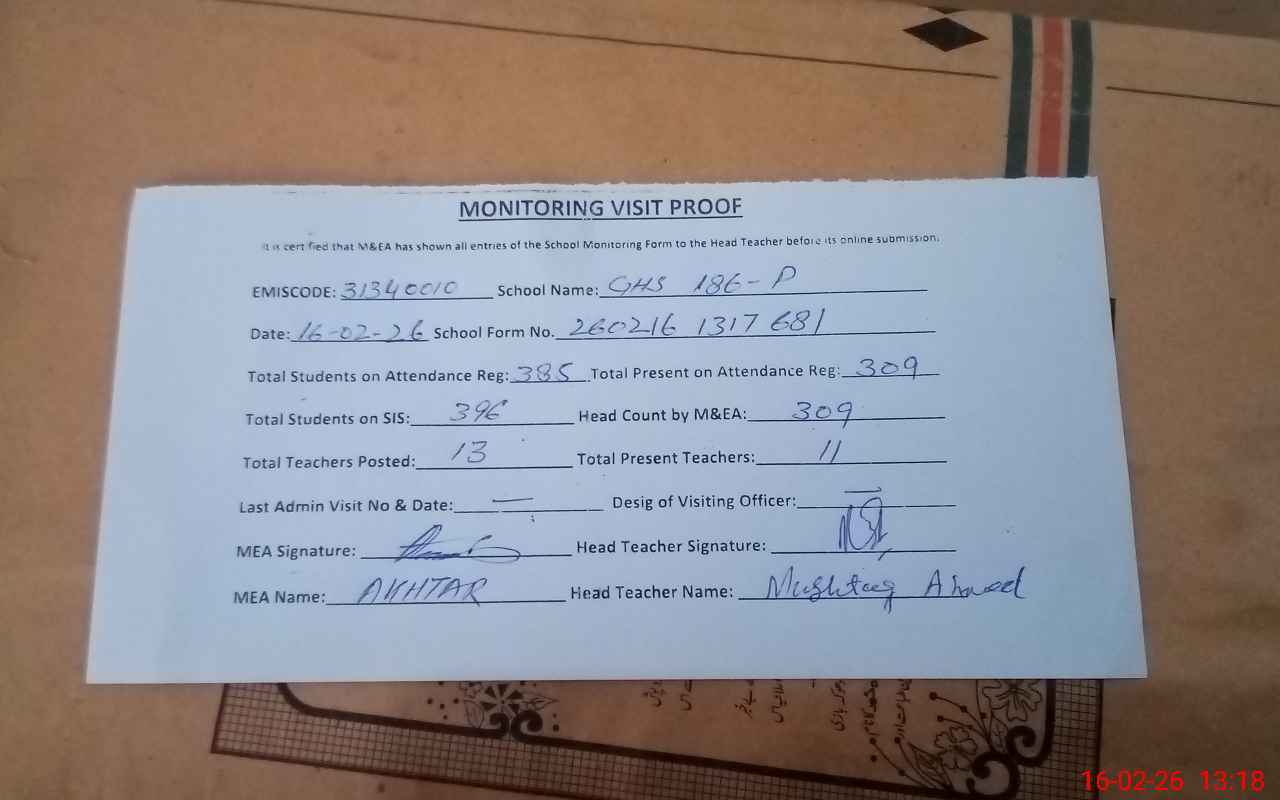 MONITORING VISIT PROOF
It is certified that M&EA has shown all entries of the School Monitoring Form to the Head Teacher before its online submission.
EMISCODE: 31340010 School Name: GHS 186-P
Date: 16-02-26 School Form No. 260216 1317 681
Total Students on Attendance Reg: 385 Total Present on Attendance Reg: 309
Total Students on SIS: 396 Head Count by M&EA: 309
Total Teachers Posted: 13 Total Present Teachers: 11
Last Admin Visit No & Date: — Desig of Visiting Officer: —
MEA Signature: Head Teacher Signature:
MEA Name: AKHTAR Head Teacher Name: Mushtaq Ahmed
16-02-26 13:18